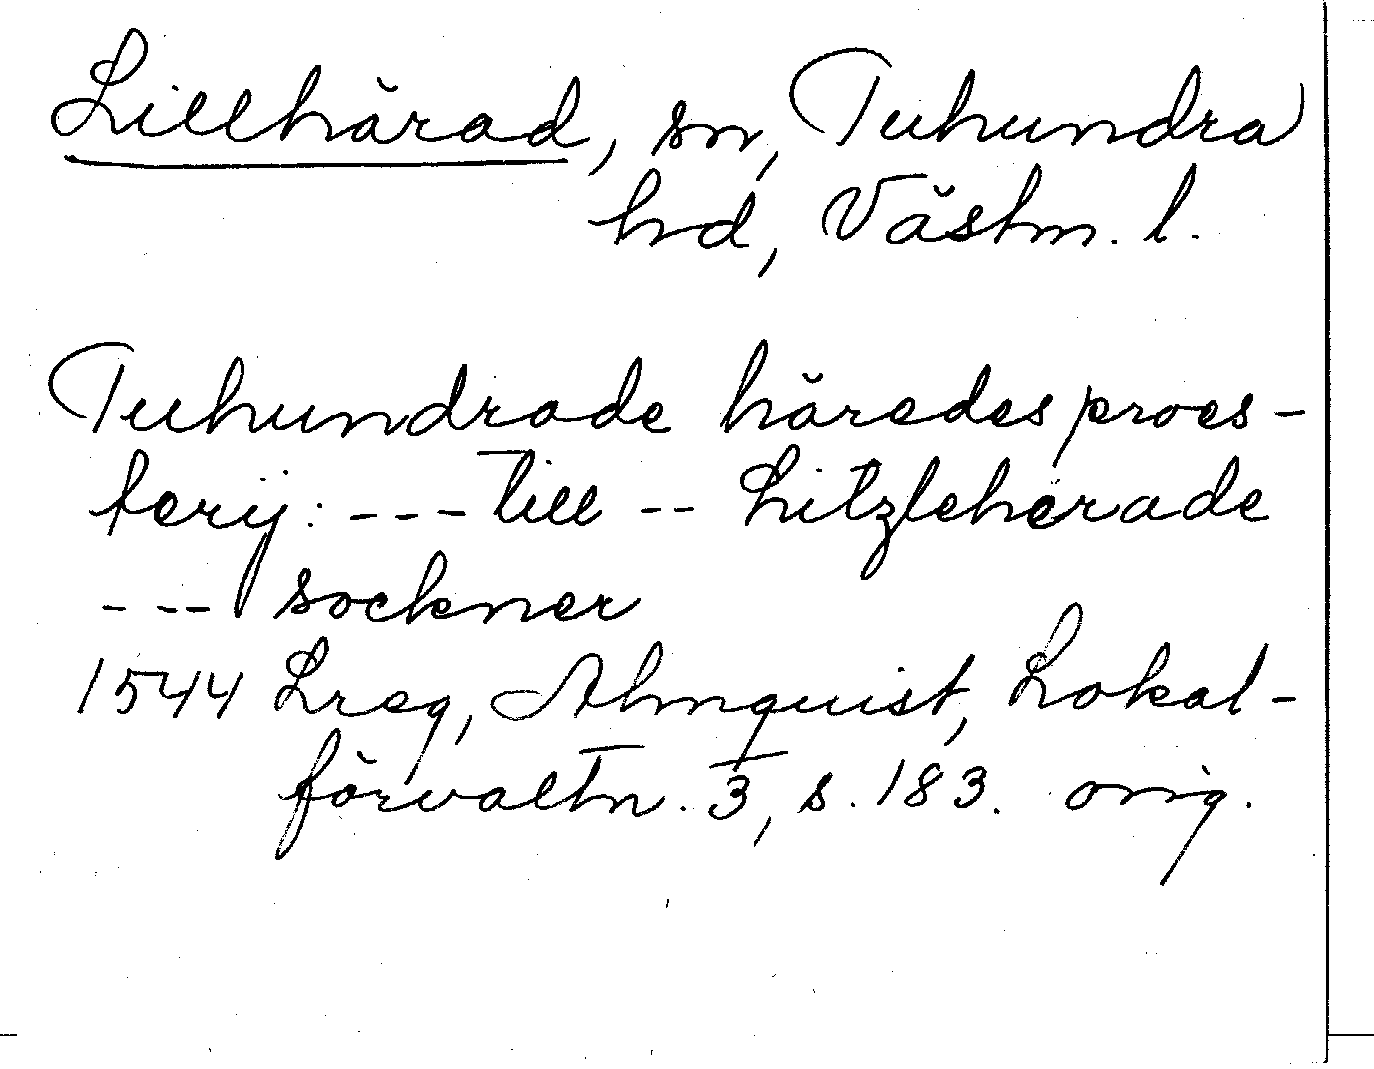 Lillhärad, sn, Tuhundra
hd, Västm. l.
Tuhundrade häredes proes-
terij: --- till -- Litzleherade
--- sockner
1544 Lreg, Almquist, Lokal-
förvaltn. 3, s. 183. orig.